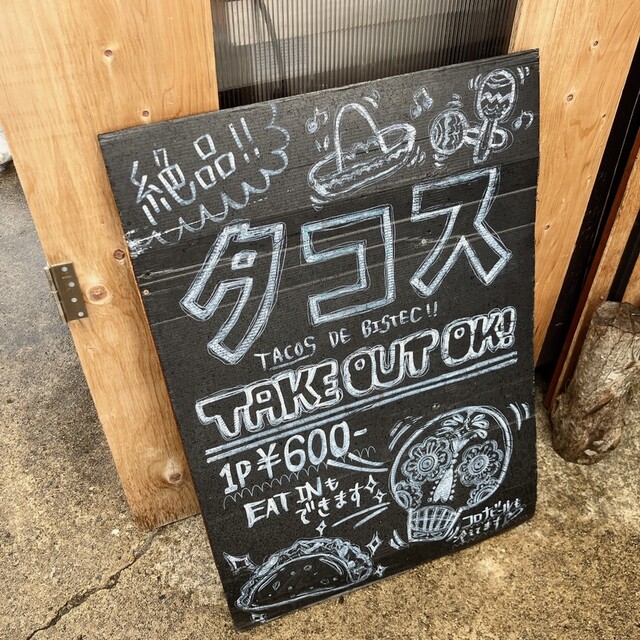 絶品!!
タコス
TACOS DE BISTEC!!
TAKE OUT OK!
1P ¥600-
EAT INも
できます
コロナビールも